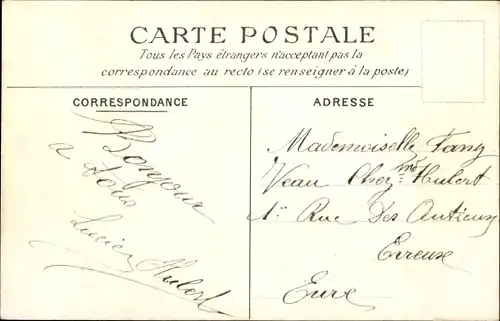 CARTE POSTALE
Tous les Pays étrangers n'acceptant pas la
correspondance au recto (se renseigner à la poste)
CORRESPONDANCE
Bonjour
a tous
Lucien Hubert
ADRESSE
Mademoiselle Fany
Veau Chez Mme Hubert
1 Rue Des
Evreux
Eure